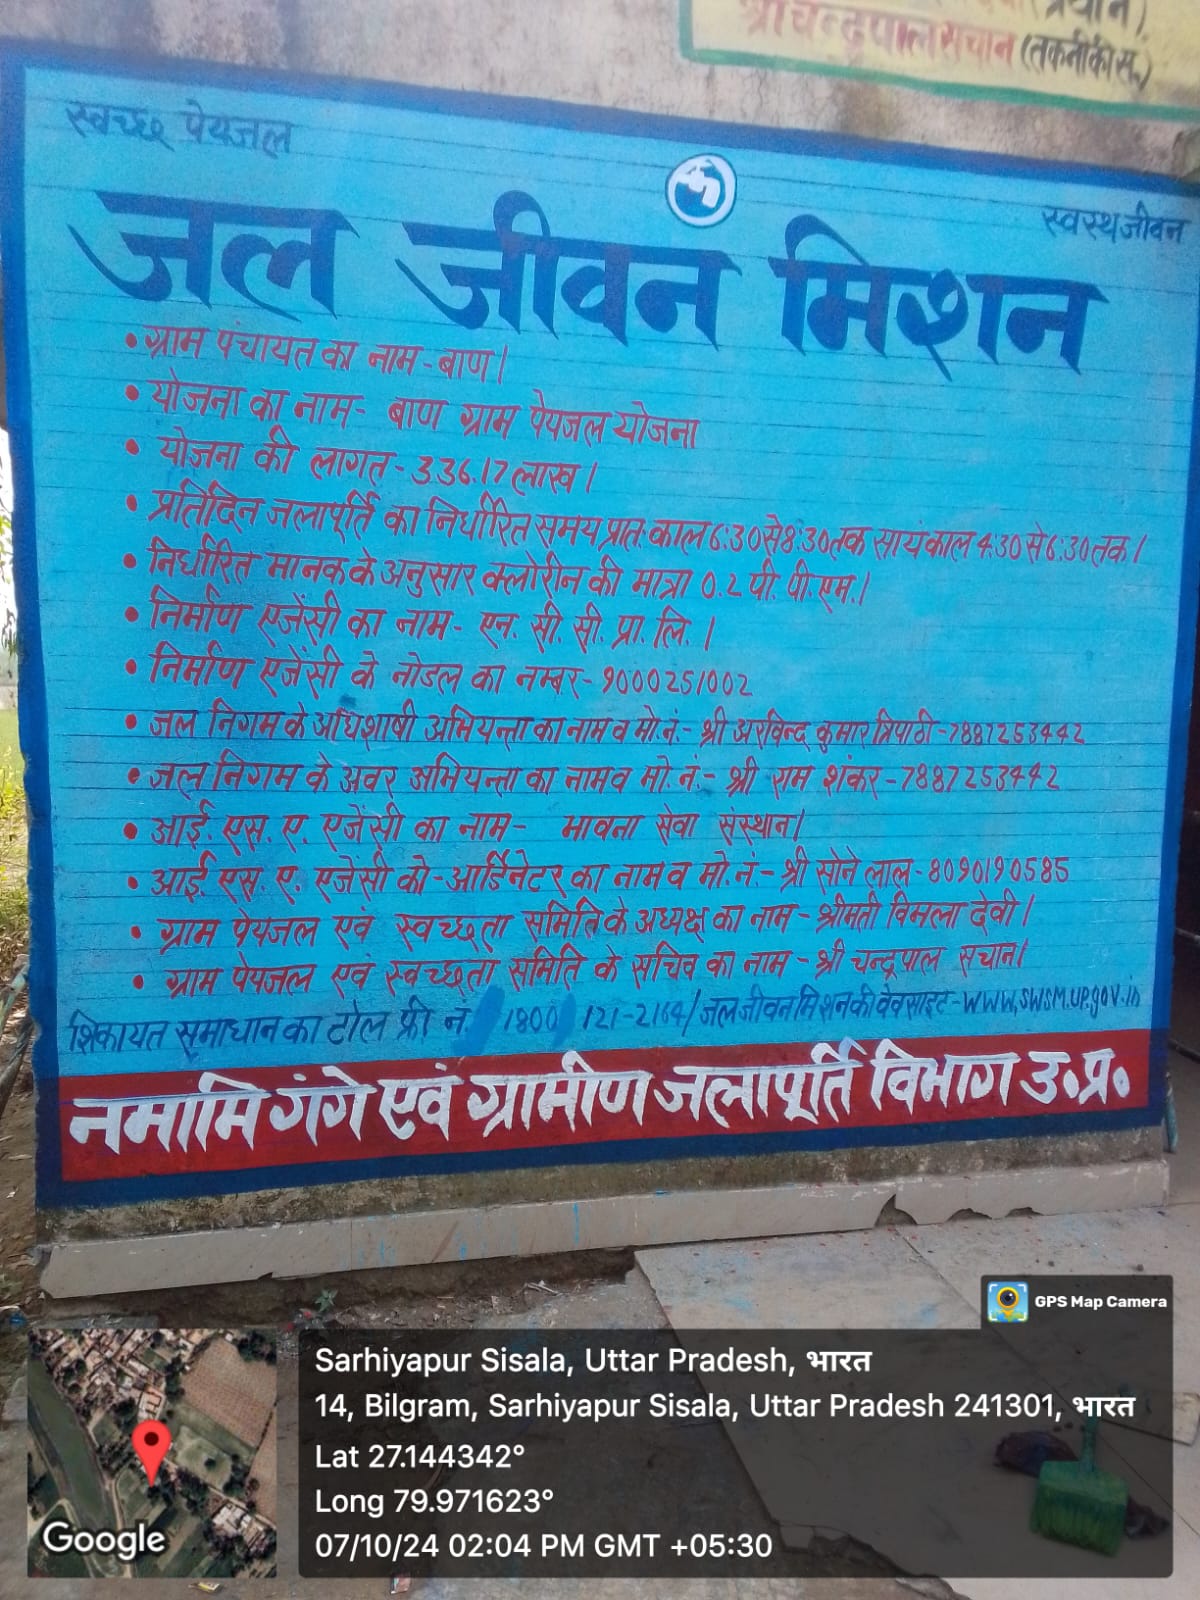 (प्रधान)
श्री चन्द्रपाल सचान (तकनीकी स.)
स्वच्छ पेयजल
स्वस्थ जीवन
जल जीवन मिशन
• ग्राम पंचायत का नाम - बाण।
• योजना का नाम- बाण ग्राम पेयजल योजना
• योजना की लागत - 336.17 लाख।
• प्रतिदिन जलापूर्ति का निर्धारित समय प्रातःकाल 6:30 से 8:30 तक सायंकाल 4:30 से 6:30 तक।
• निर्धारित मानक के अनुसार क्लोरीन की मात्रा 0.2 पी. पी. एम.।
• निर्माण एजेंसी का नाम- एन. सी. सी. प्रा. लि. ।
• निर्माण एजेंसी के नोडल का नम्बर- 9000251002
• जल निगम के अधिशाषी अभियन्ता का नाम व मो. नं.- श्री अरविन्द कुमार त्रिपाठी - 7887253442
• जल निगम के अवर अभियन्ता का नाम व मो. नं.- श्री राम शंकर - 7887253442
• आई. एस. ए. एजेंसी का नाम- भावना सेवा संस्थान।
• आई. एस. ए. एजेंसी को-आर्डिनेटर का नाम व मो. नं.- श्री सोने लाल - 8090190585
• ग्राम पेयजल एवं स्वच्छता समिति के अध्यक्ष का नाम - श्रीमती विमला देवी।
• ग्राम पेयजल एवं स्वच्छता समिति के सचिव का नाम - श्री चन्द्रपाल सचान।
शिकायत समाधान का टोल फ्री नं. 1800 121-2164/ जल जीवन मिशन की वेवसाइट - WWW.SWSM.UP.gov.in
नमामि गंगे एवं ग्रामीण जलापूर्ति विभाग उ.प्र.
GPS Map Camera
Sarhiyapur Sisala, Uttar Pradesh, भारत
14, Bilgram, Sarhiyapur Sisala, Uttar Pradesh 241301, भारत
Lat 27.144342°
Long 79.971623°
07/10/24 02:04 PM GMT +05:30
Google